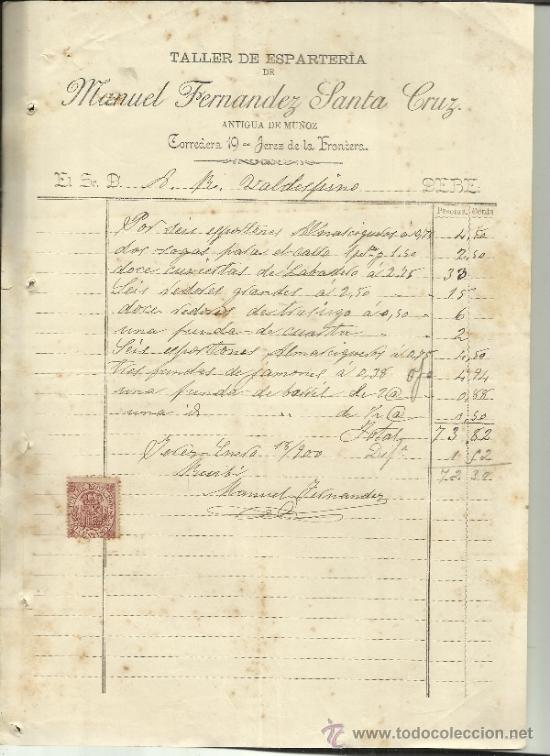 TALLER DE ESPARTERÍA
DE
Manuel Fernandez Santa Cruz.
ANTIGUA DE MUÑOZ
Corredera 19 = Jerez de la Frontera.
El Sr. D. A. R. Valdespino DEBE
Pesetas Cénts
Por seis esporttones Almaciguetos á 0,75 4,50
dos sogas para el calso 2,50
doce cuviertas de Labadilo á 2.75 33
Seis redores grandes á 2,50 15
doce redores destrasiego á 0,50 6
una funda de cuarta 2
Seis esporttones Almaciguetos á 0.75 4,50
fundas de jamones á 0,38 4,94
una funda de barril de 2@ 0,88
una id " de @ 0,50
Total 73 82
Jerez Enero 18/900 1 52
Recibí 72 30
Manuel Fernandez
www.todocoleccion.net